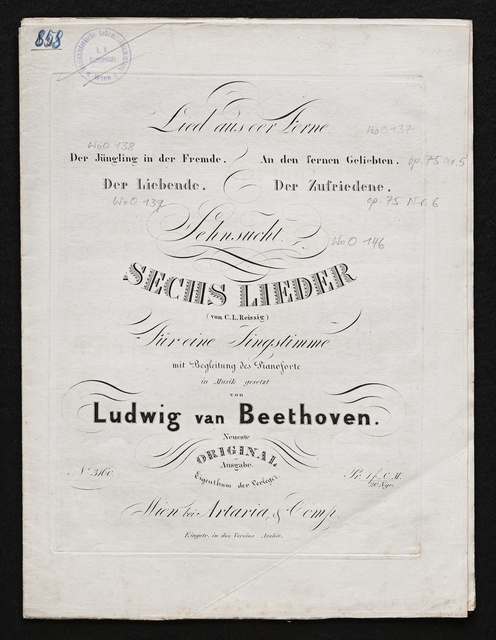 858
Wien
Lied aus der Ferne
WoO 137
WoO 138
Der Jüngling in der Fremde. An den fernen Geliebten. op. 75 Nr. 5
Der Liebende. Der Zufriedene.
WoO 139 op. 75 Nr. 6
Sehnsucht.
WoO 146
SECHS LIEDER
(von C. L. Reissig)
Für eine Singstimme
mit Begleitung des Pianoforte
in Musik gesetzt
von
Ludwig van Beethoven.
Neueste
ORIGINAL
Ausgabe.
Eigenthum der Verleger.
No. 3160. Pr. 1 f. C. M.
20 Ngr.
Wien bei Artaria & Comp.
Eingetr. in das Vereins Archiv.